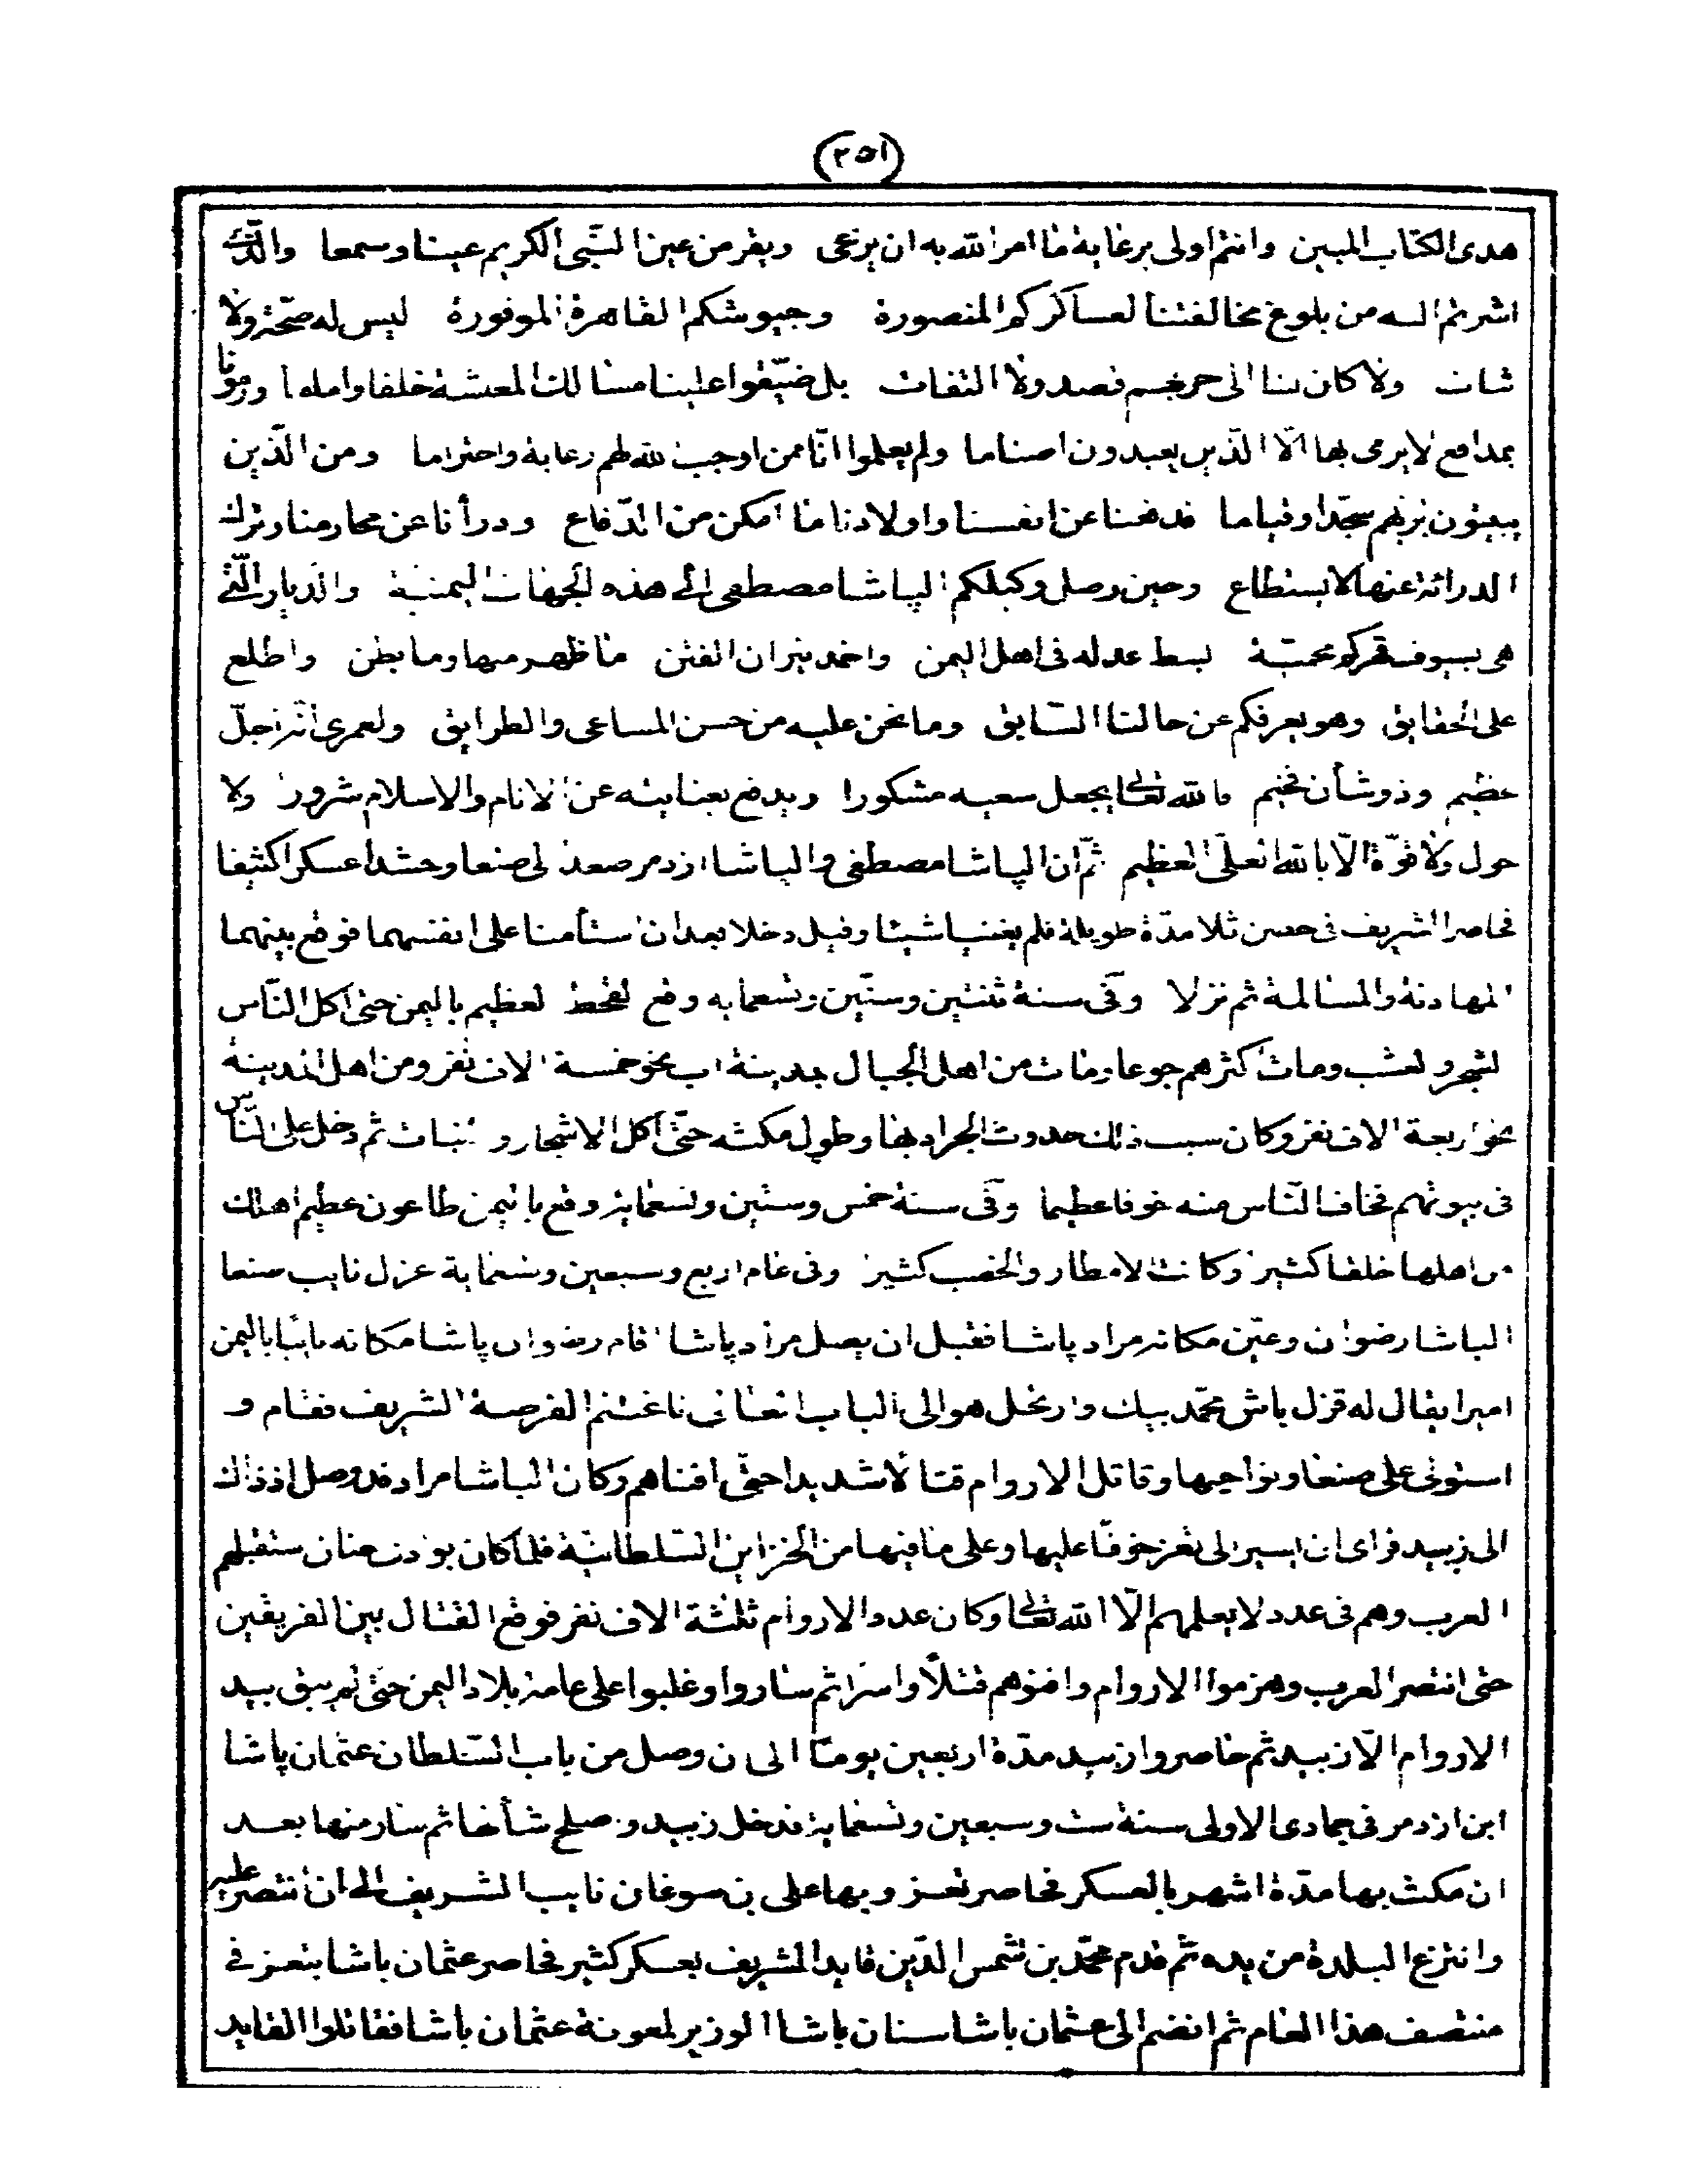 (٢٥١)
هدى الكتاب المبين وانتم اولى برعاية ما امر الله به ان يرعى ويقر من عين النبى الكريم عينا وسمعا والذى
اشرتم اليه من بلوغ مخالفتنا لعساكركم المنصورة وجيوشكم القاهرة الموفورة ليس له صحة ولا
ثبات ولا كان لنا الى حربهم قصد ولا التفات بل ضيّقوا علينا مسالك المعيشة خلفا واماما ورمونا
بمدافع لا يرمى بها الّا الّذين يعبدون اصناما ولم يعلموا انّا ممن اوجب الله لهم رعاية واحتراما ومن الّذين
يبيتون لربهم سجّدا وقياما فدفعنا عن انفسنا واولادنا ما امكن من الدّفاع ودرأنا عن محارمنا وترك
الدرائة عنها لا يستطاع وحين وصل وكيلكم الپاشا مصطفى الى هذه الجهات اليمنية والديار الّتى
هى بسيوف قهركم محميّة بسط عدله فى اهل اليمن واخمد نيران الفتن ما ظهر منها وما بطن واطلع
على الحقايق وهو يعرفكم عن حالنا السّابق وما نحن عليه من حسن المساعى والطرايق ولعمرى انّه رجلّ
عظيم وذو شأن فخيم فالله تعالى يجعل سعيه مشكورا ويدفع بعنايته عن الانام والاسلام شرورا ولا
حول ولا قوّة الّا بالله العلى العظيم ثمّ ان الپاشا مصطفى والپاشا ازدمر صعدا لى صنعا وحشدا عسكرا كثيفا
فحاصرا الشريف فى حصن ثلا مدّة طويلة فلم يغنيا شيئا وقيل دخلا بعد ان استأمنا على انفسهما فوقع بينهما
المهادنة والمسالمة ثم نزلا وفى سنة ثنتين وستّين وتسعمايه وقع القحط العظيم باليمن حتى اكل النّاس
الشجر والعشب ومات اكثرهم جوعا ومات من اهل الجبال بمدينة اب نحو خمسة الاف نفر ومن اهل المدينة
نحو اربعة الاف نفر وكان سبب ذلك حدوث الجراد بها وطول مكثه حتّى اكل الاشجار والنبات ثم دخل على النّاس
فى بيوتهم فخاف النّاس منه خوفا عظيما وفى سنة خمس وستين وتسعماية وقع باليمن طاعون عظيم اهلك
من اهلها خلقا كثيرا وكانت الامطار والخصب كثيرا وفى عام اربع وسبعين وتسعماية عزل نايب صنعا
الپاشا رضوان وعيّن مكانه مراد پاشا فقبل ان يصل مراد پاشا اقام رضوان پاشا مكانه نايبا باليمن
اميرا يقال له قزل باش محمّد بيك وارتحل هو الى الباب العالى فاغتنم الفرصة الشريف فقام و
استولى على صنعا ونواحيها وقاتل الاروام قتالا شديدا حتّى افناهم وكان الپاشا مراد قد وصل اذ ذاك
الى زبيد فراى ان يسير الى تعز خوفا عليها وعلى ما فيها من الخزاين السّلطانية فلما كان بوادى خنان ستقبلهم
العرب وهم فى عدد لا يعلمهم الّا الله تعالى وكان عدد الاروام ثلثة الاف نفر فوقع القتال بين الفريقين
حتى انتصر العرب وهزموا الاروام وافنوهم قتلا واسرا ثم ساروا وغلبوا على عامة بلاد اليمن حتى لم يبق بيد
الاروام الّا زبيد ثم حاصروا زبيد مدّة اربعين يوما الى ن وصل من باب السّلطان عثمان پاشا
ابن ازدمر فى جمادى الاولى سنة ست وسبعين وتسعماية فدخل زبيد واصلح شأنها ثم سار منها بعد
ان مكث بها مدّة اشهر بالعسكر فحاصر تعز وبها على بن سوغان نايب الشريف الى ان انتصر عليه
وانتزع البلدة من يده ثم قدم محمّد بن شمس الدّين قايد الشريف بعسكر كثير فحاصر عثمان پاشا بتعز فى
منتصف هذا العام ثم انضم الى عثمان پاشا سنان پاشا الوزير لمعونة عثمان پاشا فقاتلوا القايد